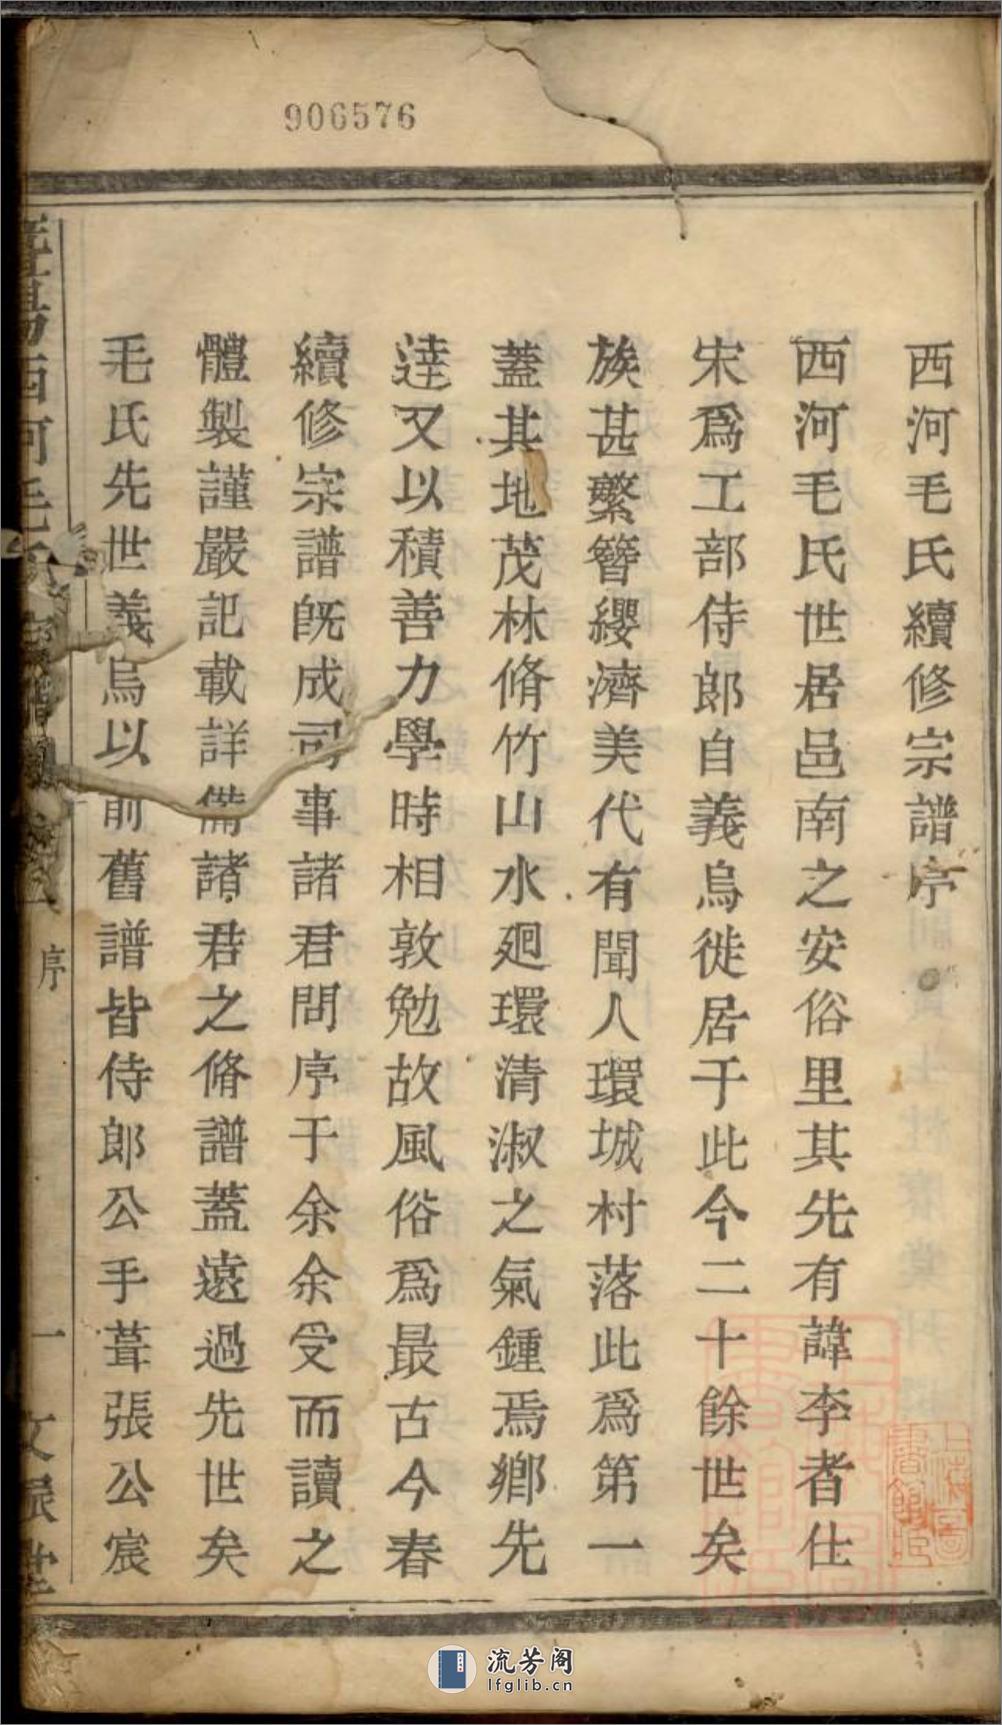 906576
西河毛氏續修宗譜序
西河毛氏世居邑南之安俗里其先有諱李者仕
宋爲工部侍郎自義烏徙居于此今二十餘世矣
族甚繁簪纓濟美代有聞人環城村落此爲第一
蓋其地茂林脩竹山水廻環清淑之氣鍾焉鄉先
達又以積善力學時相敦勉故風俗爲最古今春
續修宗譜旣成司事諸君問序于余余受而讀之
體製謹嚴記載詳備諸君之脩譜蓋遠過先世矣
毛氏先世義烏以前舊譜皆侍郎公手葺張公宸
暨陽西河毛氏宗譜
序
一
文 堂
上海圖書館藏
流芳阁
lfglib.cn